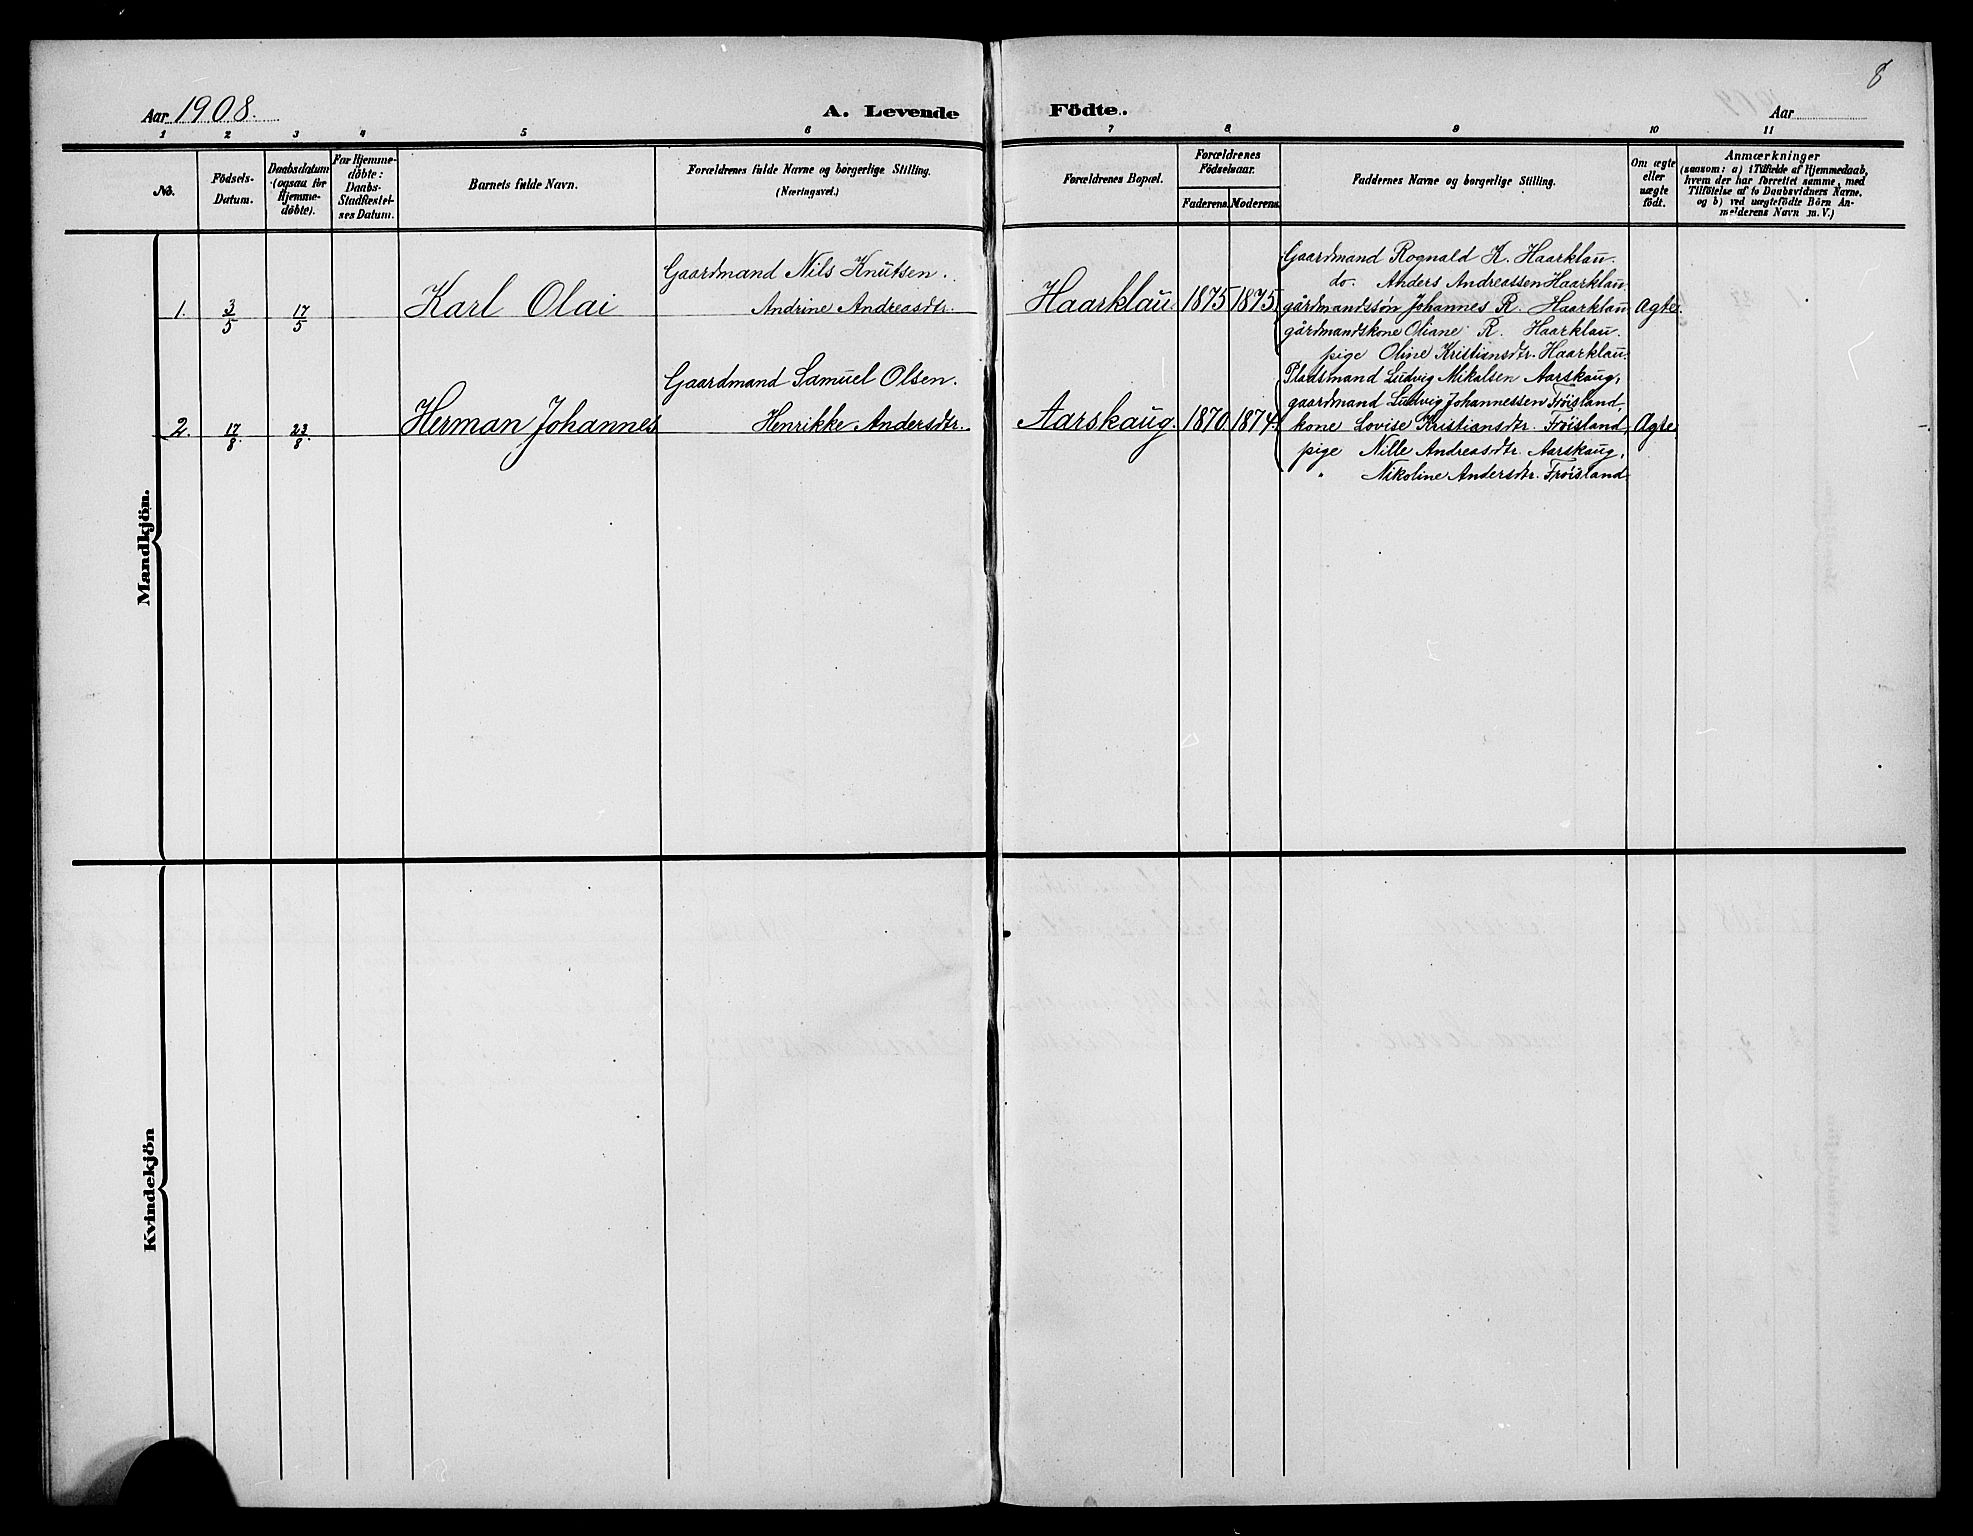 8
Aar 1908. A. Levende Födte. Aar
1 2 3 4 5 6 7 8 9 10 11
No.
Födsels-
Datum.
Daabsdatum
(ogsaa for
Hjemme-
döbte).
For Hjemme-
döbte:
Daabs-
Stadfæstel-
ses Datum.
Barnets fulde Navn.
Forældrenes fulde Navne og borgerlige Stilling.
(Næringsvei.)
Forældrenes Bopæl.
Forældrenes
Födselsaar.
Faderens. Moderens.
Faddernes Navne og borgerlige Stilling.
Om ægte
eller
uægte
födt.
Anmærkninger
(saasom: a) i Tilfælde af Hjemmedaab,
hvem der har forrettet samme, med
Tilföielse af to Daabsvidners Navne.
og b) ved uægtefödte Börn An-
melderens Navn m. V.)
Mandkjön.
1. 3/5 17/5 Karl Olai
Gaardmand Nils Knutsen.
Andrine Andreasdtr.
Haarklau. 1875 1875.
Gaardmand Rognald K. Haarklau.
do. Anders Andreassen Haarklau.
gårdmandssøn Johannes R. Haarklau
gårdmandskone Oliane R. Haarklau.
pige Oline Kristiansdtr. Haarklau.
Ægte.
2. 17/8 23/8 Herman Johannes
Gaardmand Samuel Olsen.
Henrikke Andersdtr.
Aarskaug. 1870 1874.
Pladsmand Ludvig Mikalsen Aarskaug,
gaardmand Ludvig Johannessen Frøisland,
kone Lovise Kristiansdtr. Frøisland,
pige Nille Andreasdtr. Aarskaug,
" Nikoline Andersdtr. Frøisland
Ægte.
Kvindekjön